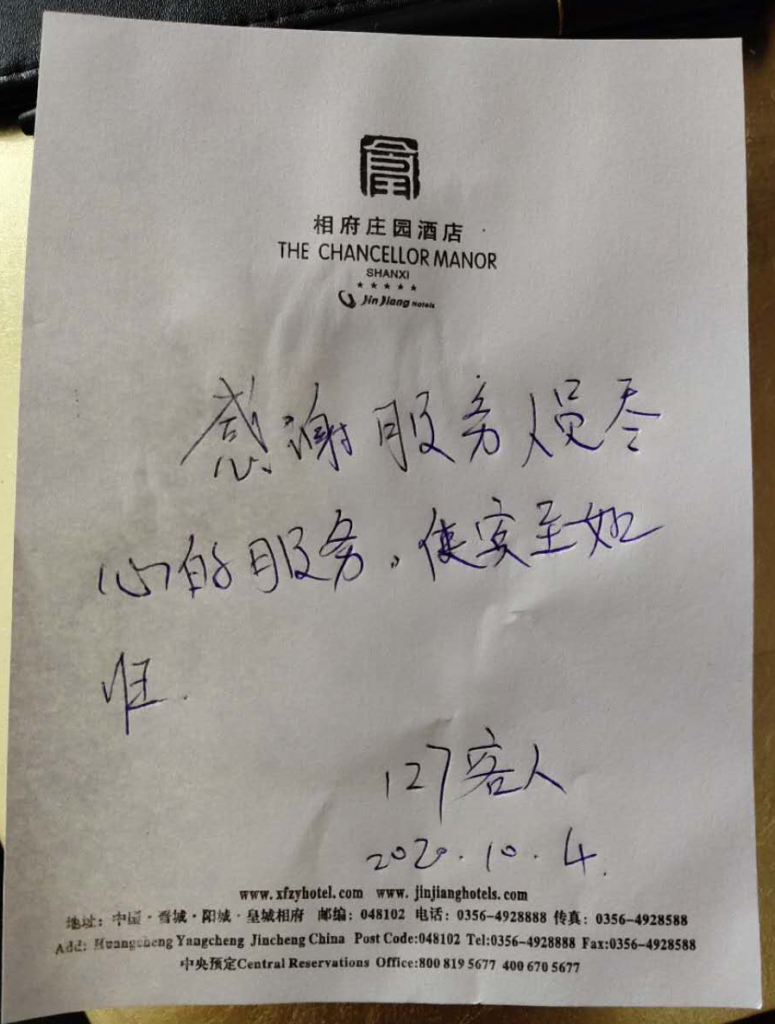 相府庄园酒店
THE CHANCELLOR MANOR
SHANXI
Jin Jiang Hotels
感谢服务人员尽
心的服务，使宾至如
归.
127客人
2020.10.4.
www.xfzyhotel.com www.jinjianghotels.com
地址：中国·晋城·阳城·皇城相府 邮编：048102 电话：0356-4928888 传真：0356-4928588
Add: Huangcheng Yangcheng Jincheng China Post Code:048102 Tel:0356-4928888 Fax:0356-4928588
中央预定Central Reservations Office:800 819 5677 400 670 5677